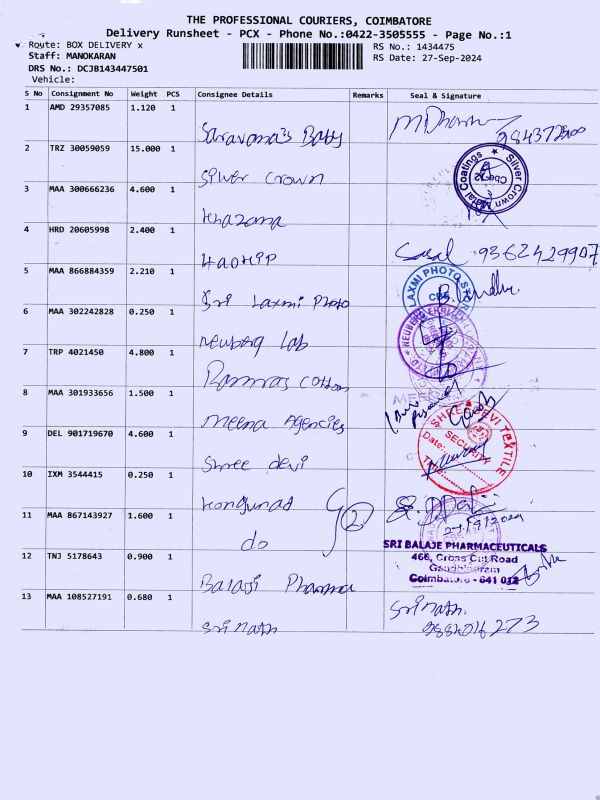 THE PROFESSIONAL COURIERS, COIMBATORE
Delivery Runsheet - PCX - Phone No.:0422-3505555 - Page No.:1
Route: BOX DELIVERY x
RS No.: 1434475
Staff: MANOKARAN
RS Date: 27-Sep-2024
DRS No.: DCJB143447501
Vehicle:
S No Consignment No Weight PCS Consignee Details Remarks Seal & Signature
1 AMD 29357085 1.120 1
Saravana's Baby
2 TRZ 30059059 15.000 1
Silver Crown
Silver Crown Metal Coatings
3 MAA 300666236 4.600 1
Khazana
4 HRD 20605998 2.400 1
Haohip
9362429907
5 MAA 866884359 2.210 1
Sri Laxmi Photo
LAXMI PHOTO
CBE
6 MAA 302242828 0.250 1
Neuberg Lab
NEUBERG EHRLICH
7 TRP 4021450 4.800 1
Ramraj Cotton
8 MAA 301933656 1.500 1
Meena Agencies
9 DEL 901719670 4.600 1
Shree devi
SHREE DEVI TEXTILE
SECURITY
Date:
10 IXM 3544415 0.250 1
Kongunad
11 MAA 867143927 1.600 1
do
2
27/9/2024
12 TNJ 5178643 0.900 1
Balaji Pharma
SRI BALAJE PHARMACEUTICALS
466, Cross Cut Road
Gandhipuram
Coimbatore - 641 012
13 MAA 108527191 0.680 1
Srinath
Srinath